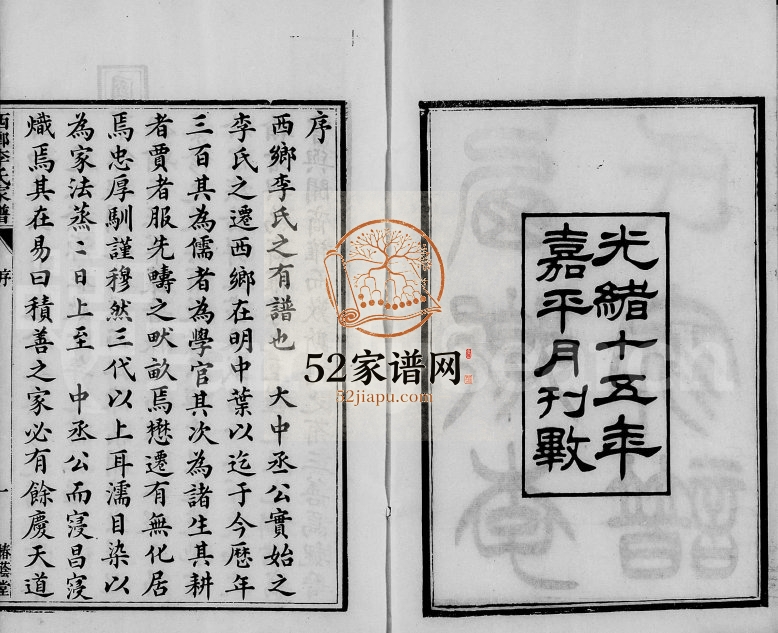 光緒十五年
嘉平月刊數
序
西鄉李氏之有譜也 大中丞公實始之
李氏之遷西鄉在明中葉以迄于今歷年
三百其為儒者為學官其次為諸生其耕
者賈者服先疇之畎畝焉懋遷有無化居
焉忠厚馴謹穆然三代以上耳濡目染以
為家法蒸〻日上至 中丞公而寖昌寖
熾焉其在易曰積善之家必有餘慶天道
西鄉李氏家譜
序
一
椿蔭堂
52家谱网
52jiapu.com